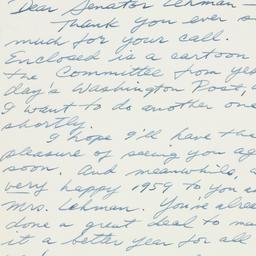 Dear Senator Lehman —
Thank you ever so
much for your call.
Enclosed is a cartoon
the Committee from yes
day's Washington Post,
I want to do another one
shortly.
I hope I'll have the
pleasure of seeing you ag
soon. And meanwhile, a
very happy 1959 to you a
Mrs. Lehman. You've alrea
done a great deal to ma
it a better year for all